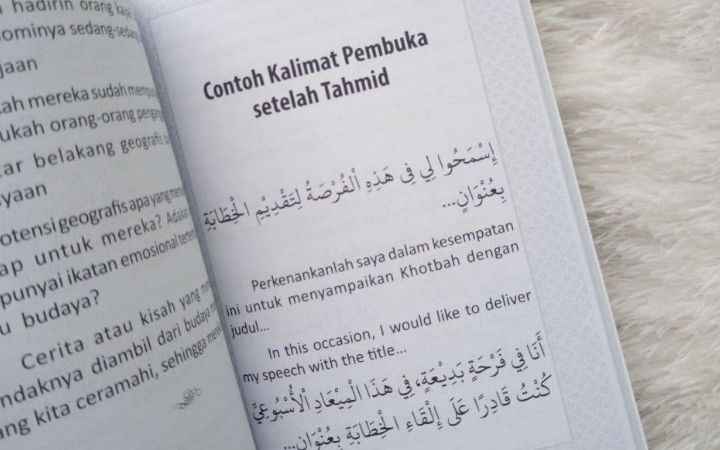 hadirin orang
ominya sedang-sedang
jaan
kah mereka sudah
ukah orang-orang
ar belakang geografis
yaan
otensi geografis apa yang
ap untuk mereka?
punyai ikatan emosional
u budaya?
Cerita atau kisah yang
ndaknya diambil dari budaya
ang kita ceramahi, sehingga
Contoh Kalimat Pembuka
setelah Tahmid
إِسْمَحُوا لِي فِى هَذِهِ اْلفُرْصَةُ لِتَقْدِيْمِ الْخِطَابَةِ
بِعُنْوَانٍ...
Perkenankanlah saya dalam kesempatan
ini untuk menyampaikan Khotbah dengan
judul...
In this occasion, I would like to deliver
my speech with the title...
أَنَا فِي فَرْحَةٍ بَدِيْعَةٍ، فِي هَذَا الْمِيْعَادِ الْأُسْبُوْعِيِّ
كُنْتُ قَادِرًا عَلَى إِلْقَاءِ الْخِطَابَةِ بِعُنْوَانٍ...